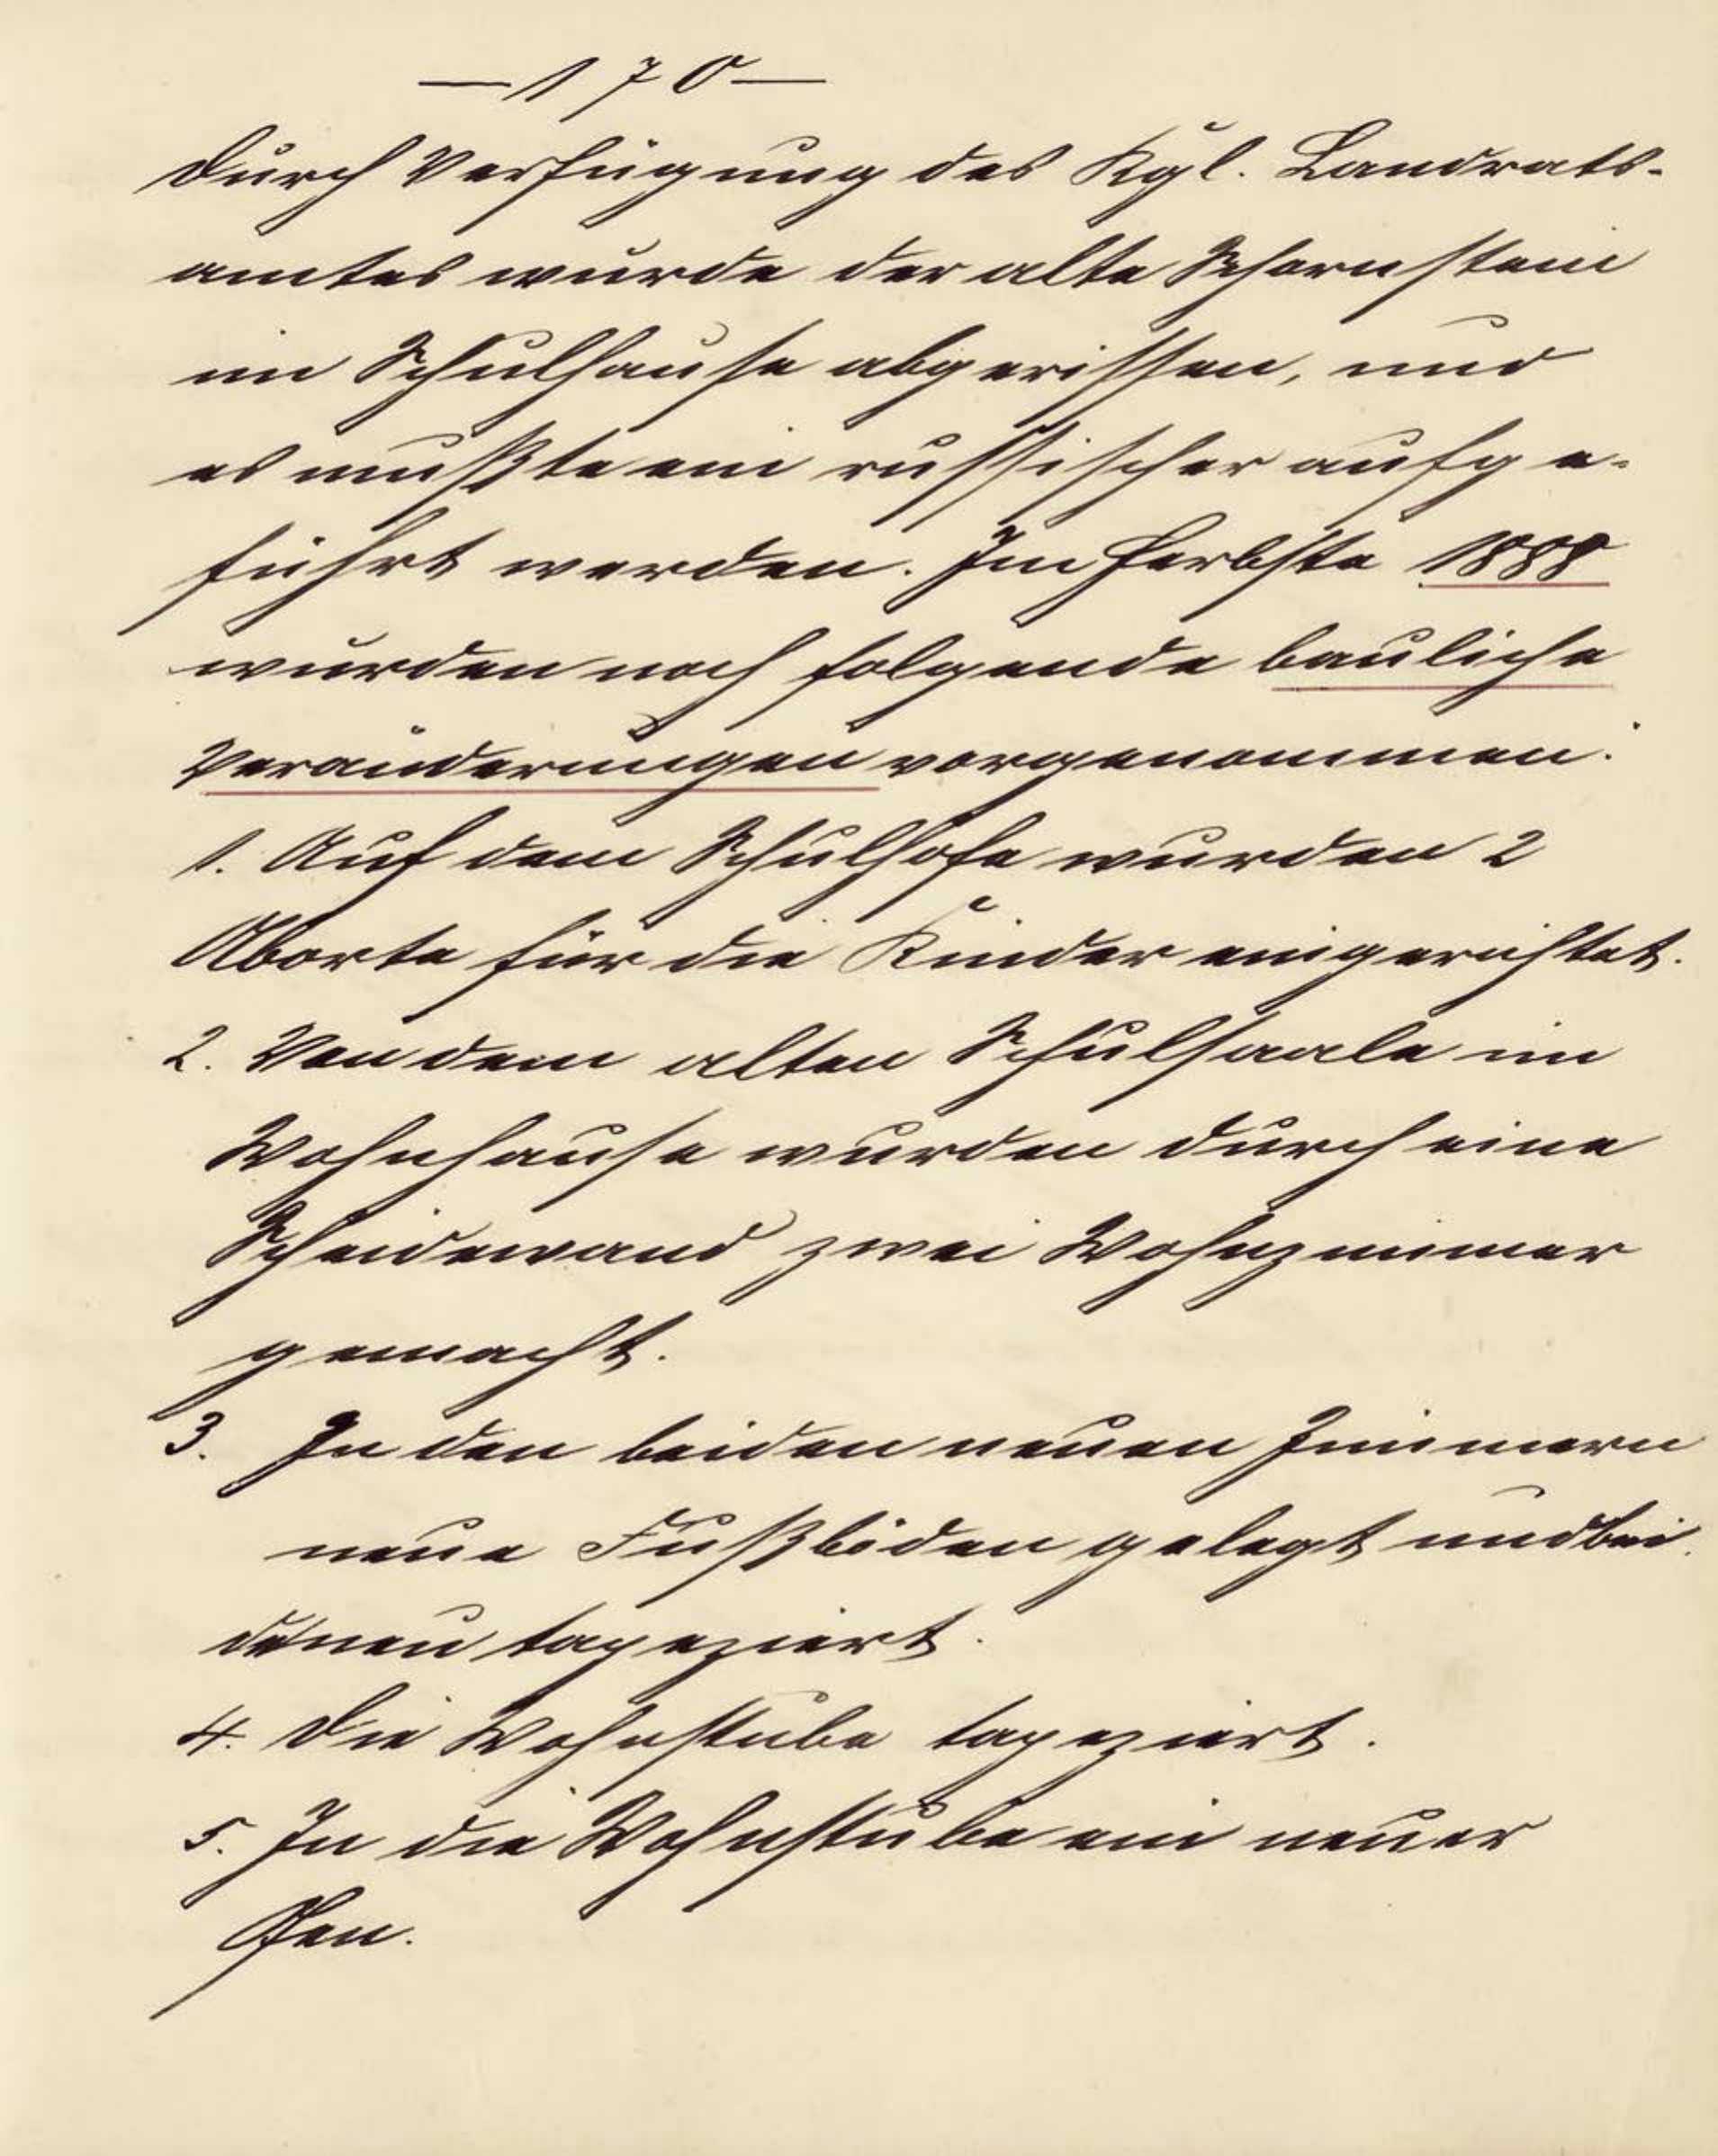 — 170 —
Durch Verfügung des Kgl. Landrats-
amtes wurde der alte Schornstein
im Schulhause abgerissen, und
es mußte ein russischer aufge-
führt werden. Im Herbste 1888
wurden noch folgende bauliche
Veränderungen vorgenommen:
1. Auf dem Schulhofe wurden 2
Aborte für die Kinder eingerichtet.
2. Von dem alten Schulsaale im
Wohnhause wurden durch eine
Scheidewand zwei Wohnzimmer
gemacht.
3. In den beiden neuen Zimmern
neue Fußböden gelegt und bei
de neu tapeziert.
4. Die Wohnstube tapeziert.
5. In die Wohnstube ein neuer
Ofen.